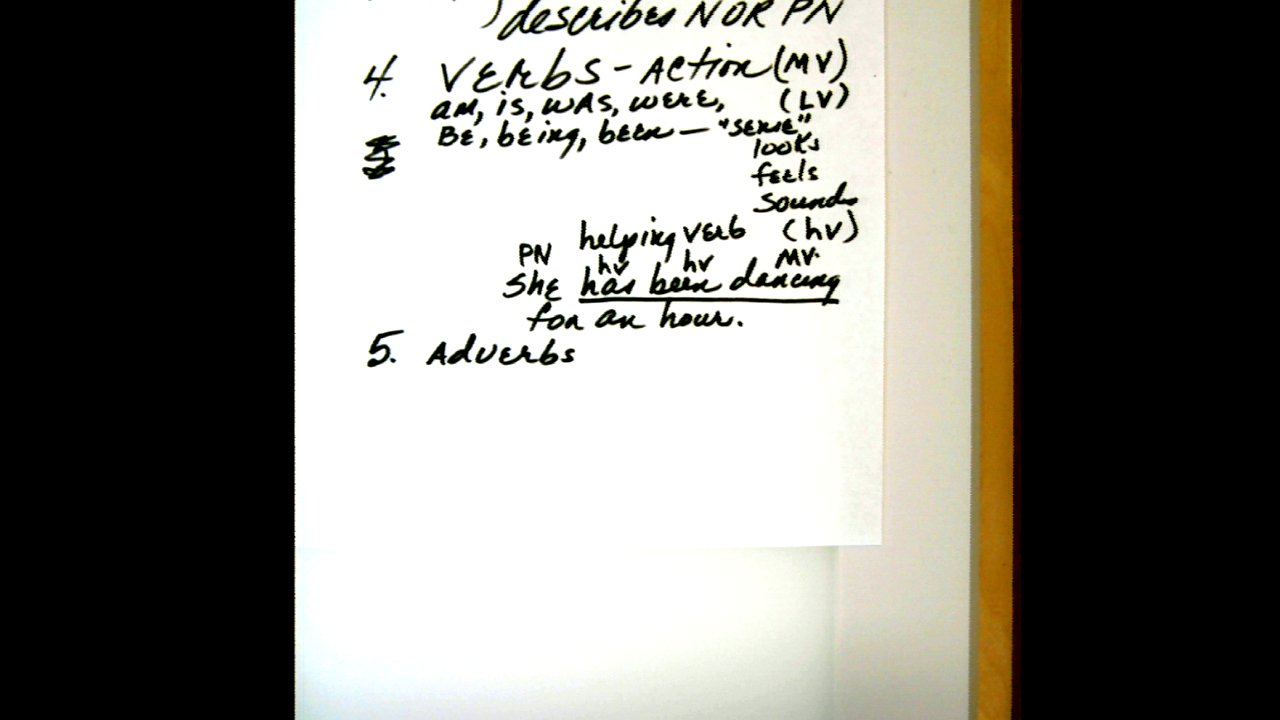 describes N OR PN
4. VERbS - ACTion (MV)
am, is, wAS, wERE, (LV)
BE, bEing, bEEn - "SENSE"
looks
fEEls
Sounds
helping vErb (hv)
PN hv hv MV.
ShE has been dancing
for an hour.
5. AdvErbS